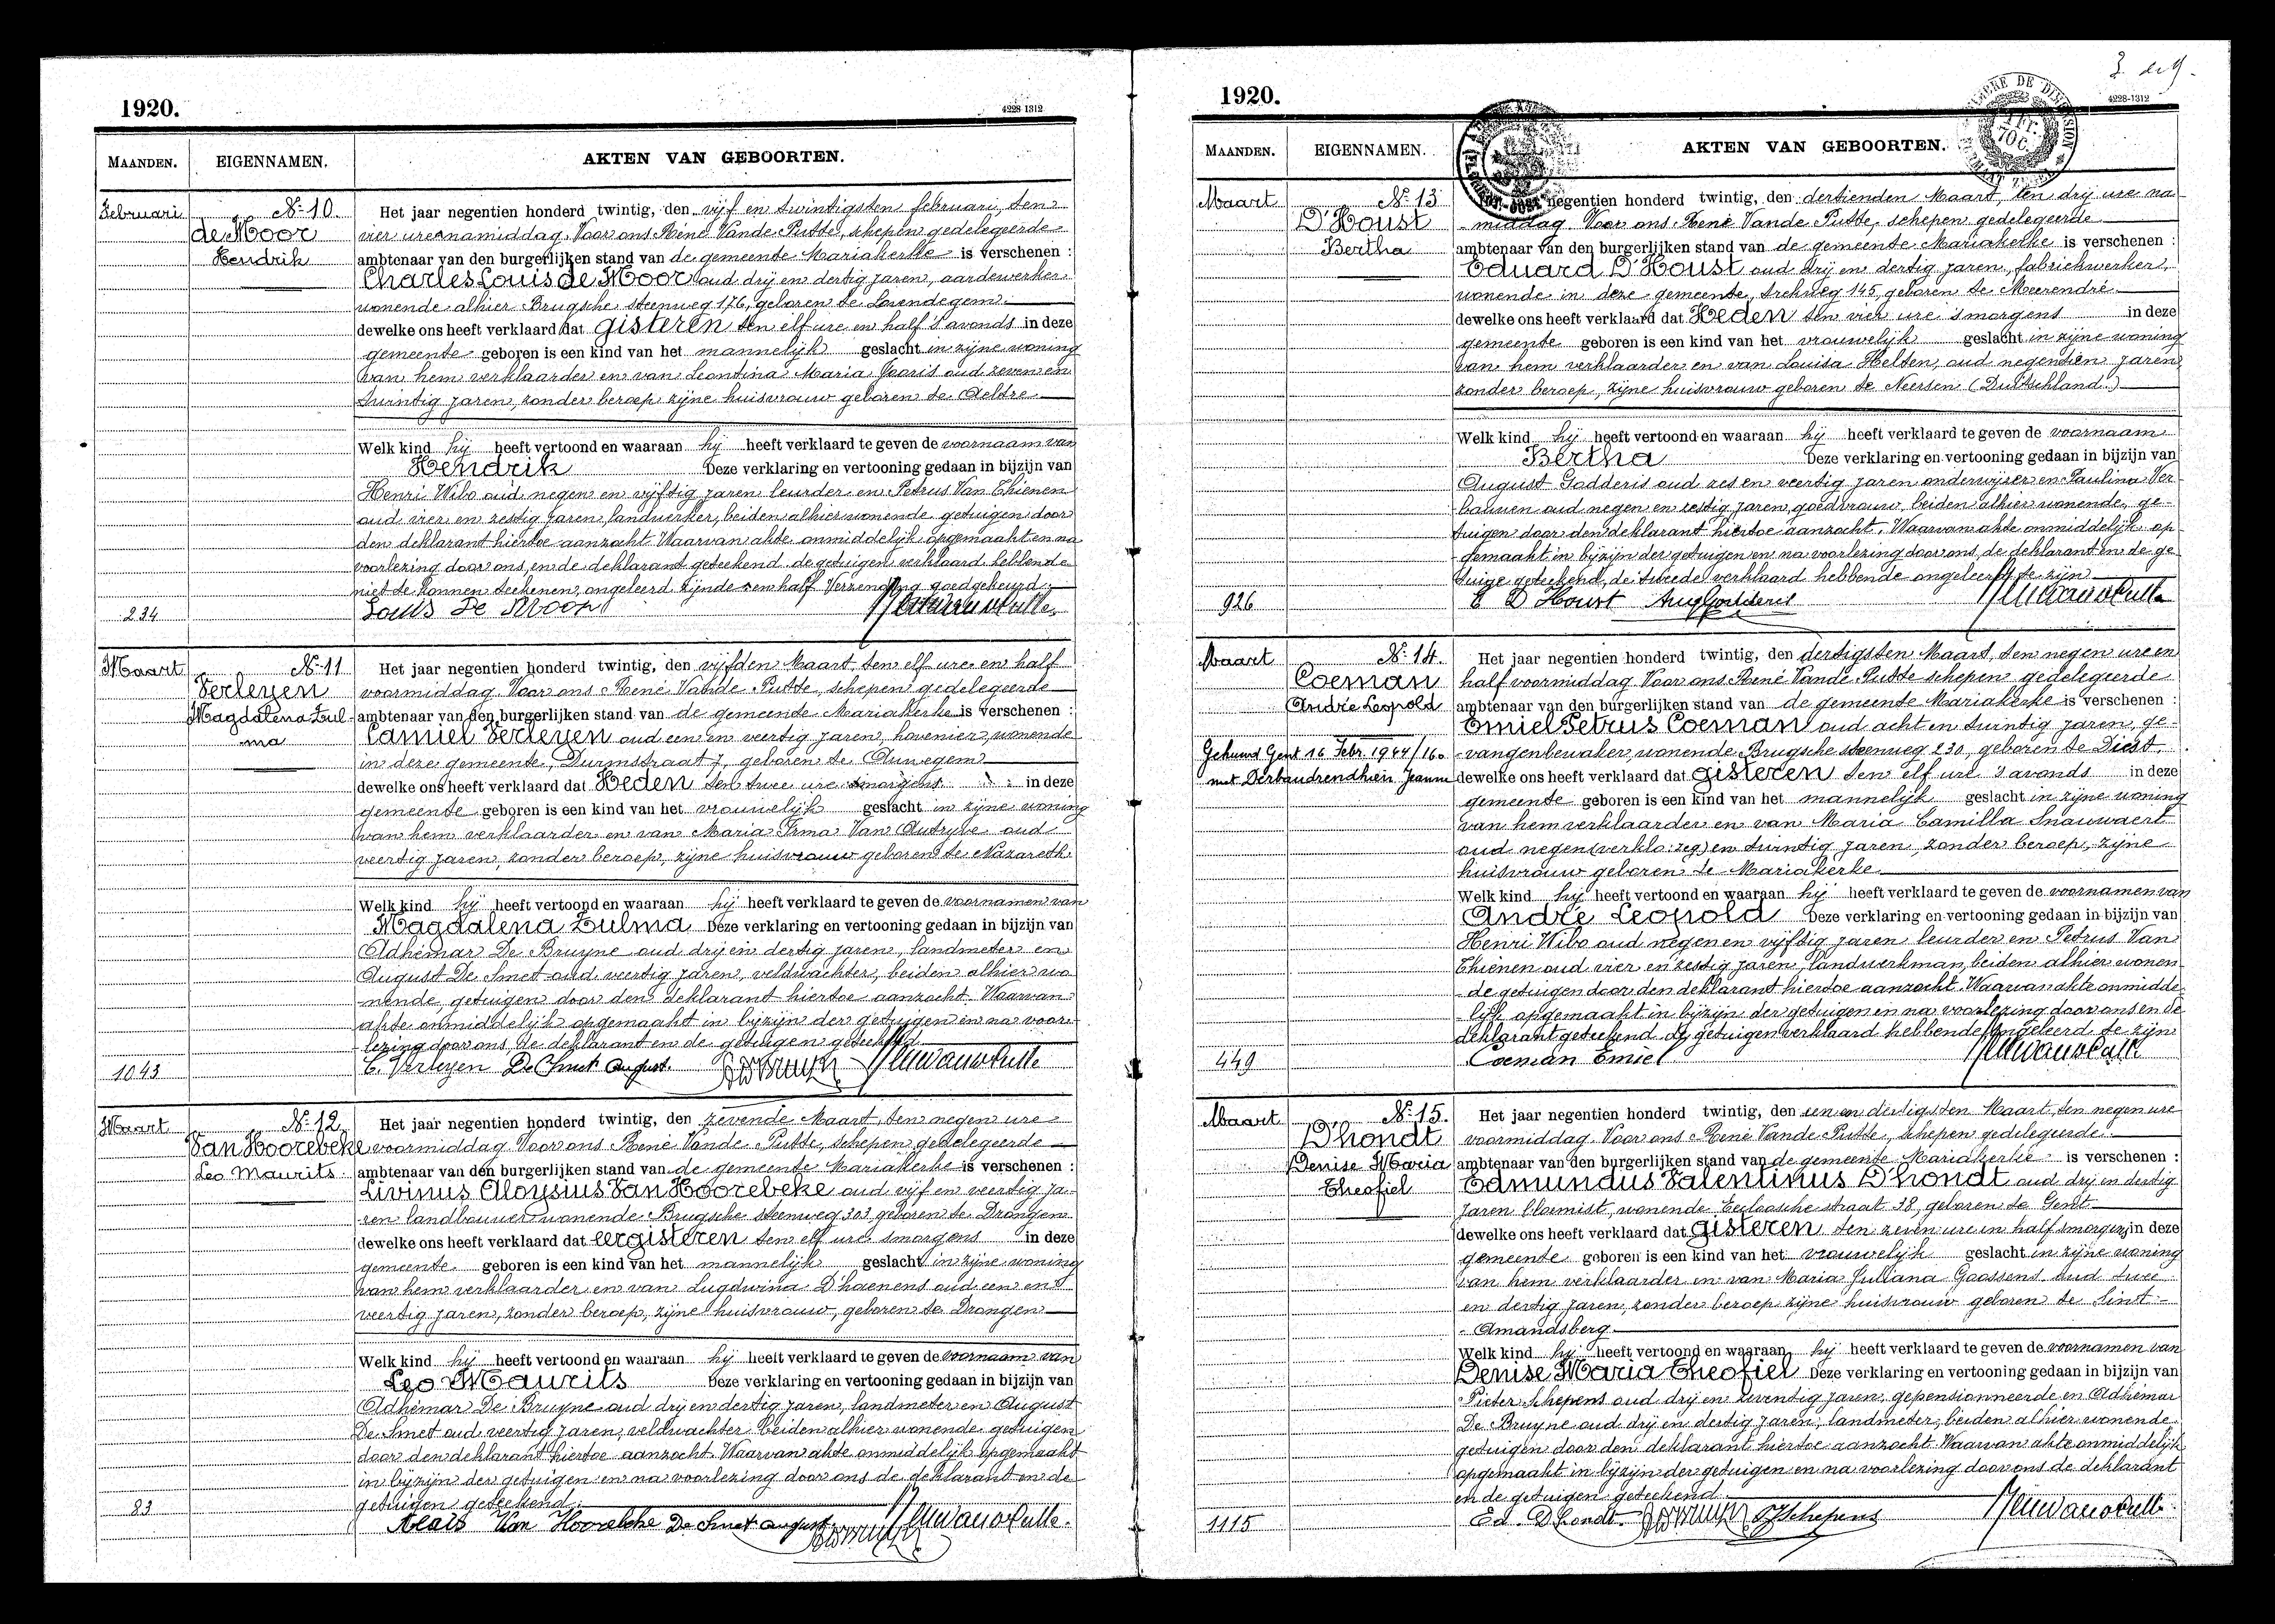 1920.
4228 1312
MAANDEN.
EIGENNAMEN.
AKTEN VAN GEBOORTEN.
Februari
No 10.
de Moor
Hendrik
Het jaar negentien honderd twintig, den vijf en twintigsten februari, ten
vier ure namiddag. Voor ons René Vande Putte, schepen gedelegeerde
ambtenaar van den burgerlijken stand van de gemeente Mariakerke is verschenen :
Charles Louis de Moor oud drij en dertig jaren, aardewerker
wonende alhier Brugsche steenweg 176, geboren te Lovendegem.
dewelke ons heeft verklaard dat gisteren ten elf ure en half 's avonds in deze
gemeente geboren is een kind van het mannelijk geslacht in zijne woning
van hem verklaarder en van Leontina Maria Jooris oud zeven en
twintig jaren, zonder beroep zijne huisvrouw geboren te Aeltre
Welk kind hij heeft vertoond en waaraan hij heeft verklaard te geven de voornaam van
Hendrik Deze verklaring en vertooning gedaan in bijzijn van
Henri Wibo oud negen en vijftig jaren leurder en Petrus Van Thienen
oud vier en zestig jaren, landwerker, beiden alhier wonende getuigen door
den deklarant hiertoe aanzocht. Waarvan akte onmiddelijk opgemaakt en na
voorlezing door ons, en de deklarant geteekend de getuigen verklaard hebbende
niet te konnen teekenen, ongeleerd zijnde en half Verzending goedgekeurd.
Louis De Moor
234
Maart
No 11
Verleyen
Magdalena Zul-
ma
Het jaar negentien honderd twintig, den vijfden Maart, ten elf ure en half
voormiddag. Voor ons René Vande Putte, schepen gedelegeerde
ambtenaar van den burgerlijken stand van de gemeente Mariakerke is verschenen :
Camiel Verleyen oud een en veertig jaren, hovenier, wonende
in deze gemeente, Durmstraat 7, geboren te Auwegem
dewelke ons heeft verklaard dat Heden ten twee ure smorgens in deze
gemeente geboren is een kind van het vrouwelijk geslacht in zijne woning
van hem verklaarder en van Maria Irma Van Autryve oud
veertig jaren, zonder beroep, zijne huisvrouw geboren te Nazareth
Welk kind hij heeft vertoond en waaraan hij heeft verklaard te geven de voornamen van
Magdalena Zulma Deze verklaring en vertooning gedaan in bijzijn van
Adhémar De Bruyne oud drij en dertig jaren, landmeter en
August De Smet oud veertig jaren, veldwachter, beiden alhier wo
nende getuigen door den deklarant hiertoe aanzocht. Waarvan
akte onmiddelijk opgemaakt in bijzijn der getuigen en na voor-
lezing door ons, de deklarant en de getuigen geteekend
C. Verleyen De Smet August.
1043
Maart
No 12
Van Hoorebeke
Leo Maurits
Het jaar negentien honderd twintig, den zevende Maart, ten negen ure
voormiddag. Voor ons René Vande Putte, schepen gedelegeerde
ambtenaar van den burgerlijken stand van de gemeente Mariakerke is verschenen :
Livinus Aloysius Van Hoorebeke oud vijf en veertig ja-
ren landbouwer wonende Brugsche steenweg 303 geboren te Drongen
dewelke ons heeft verklaard dat eergisteren ten elf ure smorgens in deze
gemeente geboren is een kind van het mannelijk geslacht in zijne woning
van hem verklaarder en van Lugdwina D'haenens oud een en
veertig jaren, zonder beroep, zijne huisvrouw, geboren te Drongen
Welk kind hij heeft vertoond en waaraan hij heeft verklaard te geven de voornaam van
Leo Maurits Deze verklaring en vertooning gedaan in bijzijn van
Adhémar De Bruyne oud drij en dertig jaren, landmeter en August
De Smet oud veertig jaren, veldwachter beiden alhier wonende getuigen
door den deklarant hiertoe aanzocht. Waarvan akte onmiddelijk opgemaakt
in bijzijn der getuigen en na voorlezing door ons de deklarant en de
getuigen geteekend.
Alois Van Hoorebeke De Smet August
83
3. de 9.
1920.
4228-1312
MAANDEN.
EIGENNAMEN.
AKTEN VAN GEBOORTEN.
Maart
No 13
D'Houst
Bertha
negentien honderd twintig, den dertienden Maart, ten drij ure na
middag. Voor ons René Vande Putte, schepen gedelegeerde
ambtenaar van den burgerlijken stand van de gemeente Mariakerke is verschenen :
Eduard D'Houst oud drij en dertig jaren, fabriekwerker,
wonende in deze gemeente, trekweg 145, geboren te Meerendré
dewelke ons heeft verklaard dat Heden ten vier ure 's morgens in deze
gemeente geboren is een kind van het vrouwelijk geslacht in zijne woning
van hem verklaarder en van Louisa Helten, oud negentien jaren,
zonder beroep, zijne huisvrouw geboren te Neersen (Duitschland.)
Welk kind hij heeft vertoond en waaraan hij heeft verklaard te geven de voornaam
Bertha Deze verklaring en vertooning gedaan in bijzijn van
August Godderis oud zes en veertig jaren onderwijzer en Paulina Ver-
bauwen oud negen en zestig jaren, goedvrouw, beiden alhier wonende ge-
tuigen door den deklarant hiertoe aanzocht. Waarvan akte onmiddelijk op
gemaakt in bijzijn der getuigen en na voorlezing door ons, de deklarant en de ge-
tuige geteekend, de tweede verklaard hebbende ongeleerd te zijn
E D'Houst Aug Godderis
926
Maart
No 14.
Coeman
André Leopold
Gehuwd Gent 16 Febr. 1944/160
met Derbaudrendhien Jeanne
Het jaar negentien honderd twintig, den dertigsten Maart, ten negen ure en
half voormiddag. Voor ons René Vande Putte schepen gedelegeerde
ambtenaar van den burgerlijken stand van de gemeente Mariakerke is verschenen :
Emiel Petrus Coeman oud acht en twintig jaren, ge-
vangenbewaker, wonende Brugsche steenweg 230, geboren te Diest,
dewelke ons heeft verklaard dat gisteren ten elf ure 's avonds in deze
gemeente geboren is een kind van het mannelijk geslacht in zijne woning
van hem verklaarder en van Maria Camilla Snauwaert
oud negen (verkla: zeg) en twintig jaren, zonder beroep, zijne
huisvrouw geboren te Mariakerke
Welk kind hij heeft vertoond en waaraan hij heeft verklaard te geven de voornamen van
André Leopold Deze verklaring en vertooning gedaan in bijzijn van
Henri Wibo oud negen en vijftig jaren leurder en Petrus Van
Thienen oud vier en zestig jaren, landwerkman, beiden alhier wonen-
de getuigen door den deklarant hiertoe aanzocht. Waarvan akte onmidde-
lijk opgemaakt in bijzijn der getuigen en na voorlezing door ons en de
deklarant geteekend de getuigen verklaard hebbende ongeleerd te zijn
Coeman Emiel
449
Maart
No 15.
D'hondt
Denise Maria
Theofiel
Het jaar negentien honderd twintig, den een en dertigsten Maart, ten negen ure
voormiddag. Voor ons René Vande Putte, schepen gedelegeerde
ambtenaar van den burgerlijken stand van de gemeente Mariakerke is verschenen :
Edmundus Valentinus D'hondt oud drij en dertig
jaren bloemist, wonende Eecloosche straat 38, geboren te Gent
dewelke ons heeft verklaard dat gisteren ten zeven ure en half smorgens in deze
gemeente geboren is een kind van het vrouwelijk geslacht in zijne woning
van hem verklaarder en van Maria Juliana Goossens oud twee
en dertig jaren, zonder beroep zijne huisvrouw geboren te Sint-
- Amandsberg
Welk kind hij heeft vertoond en waaraan hij heeft verklaard te geven de voornamen van
Denise Maria Theofiel Deze verklaring en vertooning gedaan in bijzijn van
Pieter Schepens oud drij en zeventig jaren, gepensionneerde en Adhémar
De Bruyne oud drij en dertig jaren, landmeter, beiden alhier wonende
getuigen door den deklarant hiertoe aanzocht. Waarvan akte onmiddelijk
opgemaakt in bijzijn der getuigen en na voorlezing door ons de deklarant
en de getuigen geteekend
Ed. D'hondt. P Schepens
1115